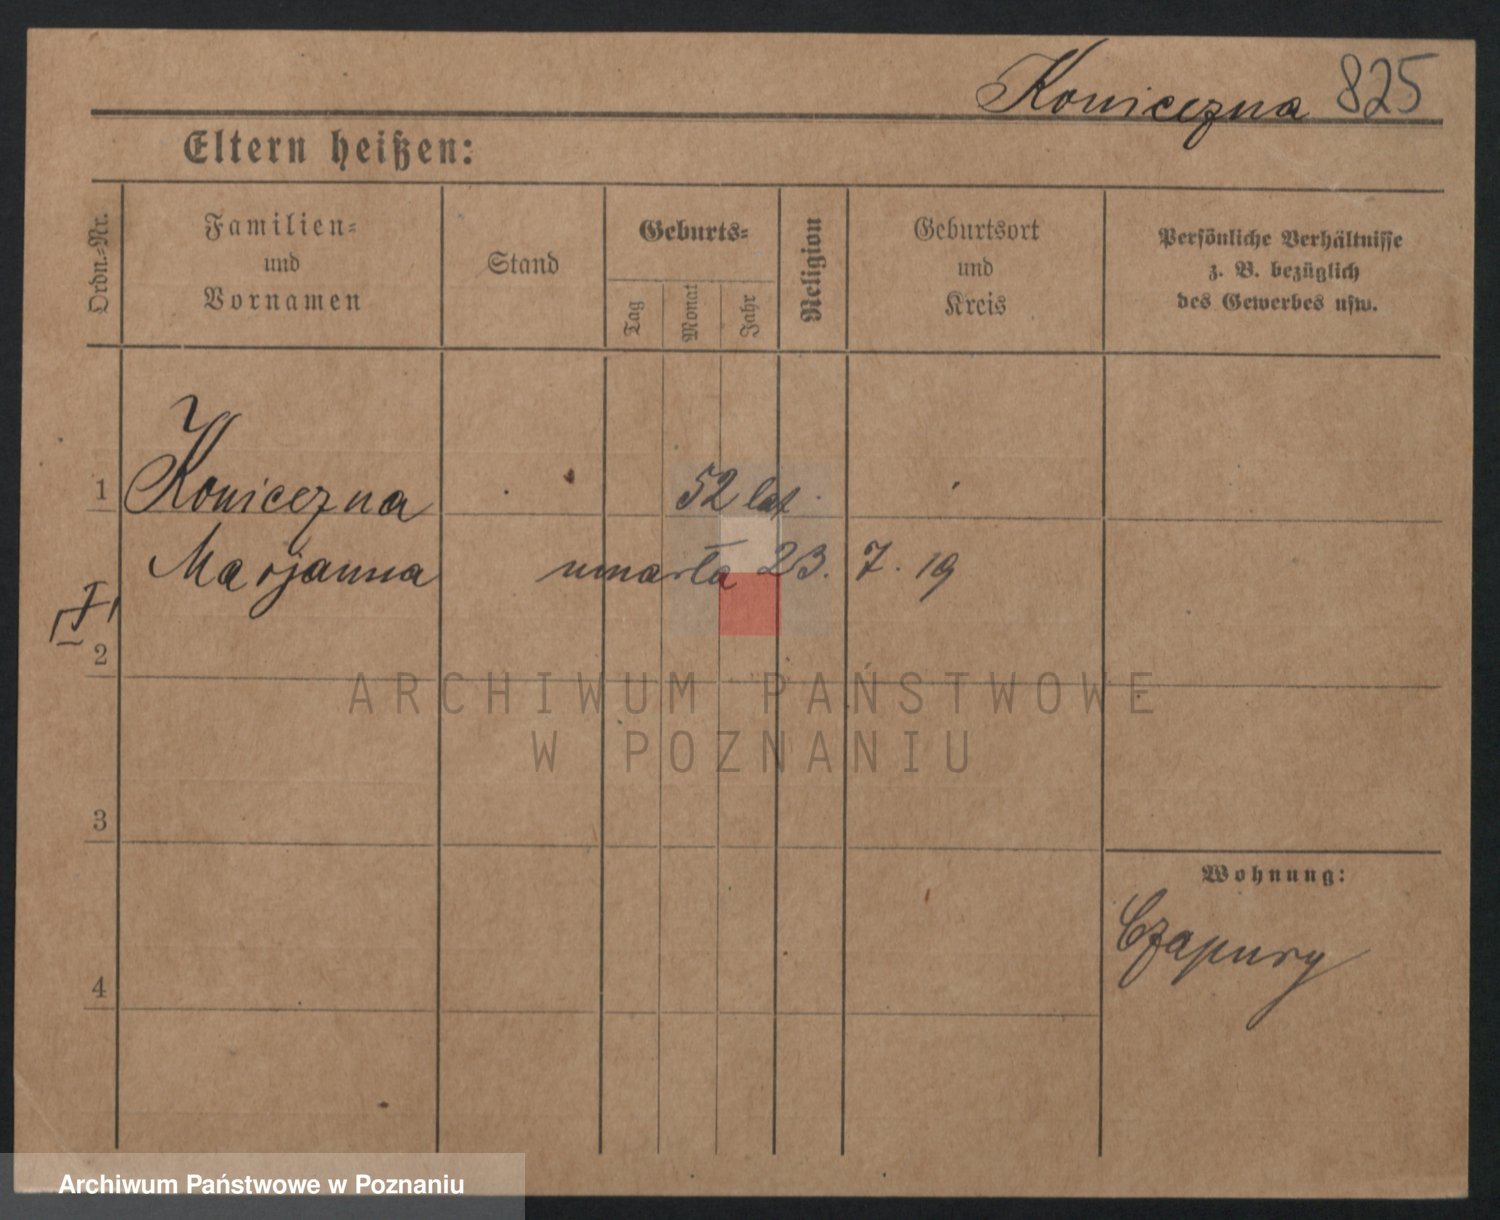 Konieczna 825
Eltern heißen:
Ordn.-Nr.
Familien-
und
Vornamen
Stand
Geburts-
Tag
Monat
Jahr
Religion
Geburtsort
und
Kreis
Persönliche Verhältnisse
z. B. bezüglich
des Gewerbes usw.
1 Konieczna 52 lat.
Marjanna umarła 23. 7. 19
2
ARCHIWUM PAŃSTWOWE
W POZNANIU
3
Wohnung:
Czapury
4
Archiwum Państwowe w Poznaniu